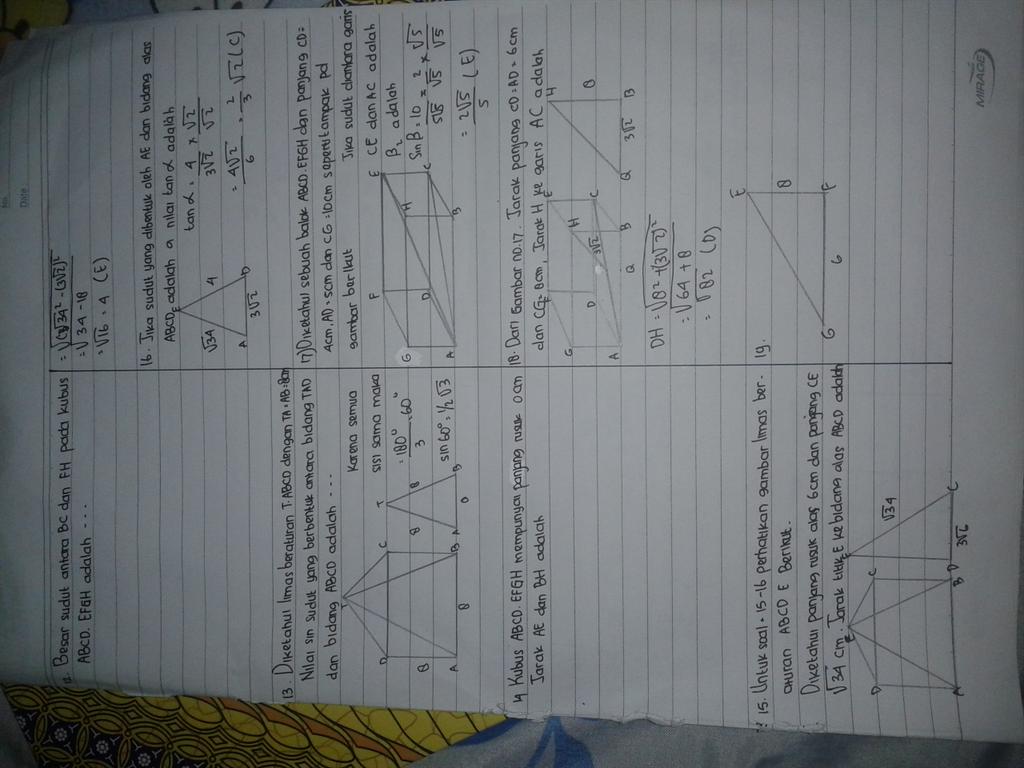 No.
Date
12. Besar sudut antara BC dan FH pada kubus
ABCD.EFGH adalah ....
13. Diketahui limas beraturan T.ABCD dengan TA=AB=8cm
Nilai sin sudut yang berbentuk antara bidang TAD
dan bidang ABCD adalah ....
T
D
C
A
B
8
8
T
8
8
A
B
Karena semua
sisi sama maka
= 180° / 3 = 60°
sin 60° = 1/2 √3
14 Kubus ABCD.EFGH mempunyai panjang rusuk
Jarak AE dan BH adalah
15. Untuk soal 15-16 perhatikan gambar limas ber-
aturan ABCD E Berikut.
Diketahui panjang rusuk alas 6cm dan panjang CE
√34 cm. Jarak titik E ke bidang alas ABCD adalah
E
D
C
A
B
E
√34
D
C
3√2
= √(√34)² - (3√2)²
= √34 - 18
= √16 = 4 (E)
16. Jika sudut yang dibentuk oleh AE dan bidang alas
ABCD adalah α nilai tan α adalah
E
√34
4
A
D
3√2
tan α = 4 / 3√2 × √2 / √2
= 4√2 / 6 = 2/3 √2 (C)
17) Diketahui sebuah balok ABCD.EFGH dan panjang CD=
4cm, AD=5cm dan CG=10cm seperti tampak pd
gambar berikut
Jika sudut diantara garis
CE dan AC adalah
β, adalah
F
E
G
H
D
C
A
B
Sin β = 10 / 5√5 = 2 / √5 × √5 / √5
= 2√5 / 5 (E)
18. Dari Gambar no.17. Jarak panjang CD=AD=6cm
dan CG=8cm, Jarak H ke garis AC adalah
F
E
G
H
D
C
3√2
A
Q
B
H
8
Q
3√2
B
DH = √8² + (3√2)²
= √64 + 8
= √82 (D)
19.
E
8
G
6
F
MIRAGE